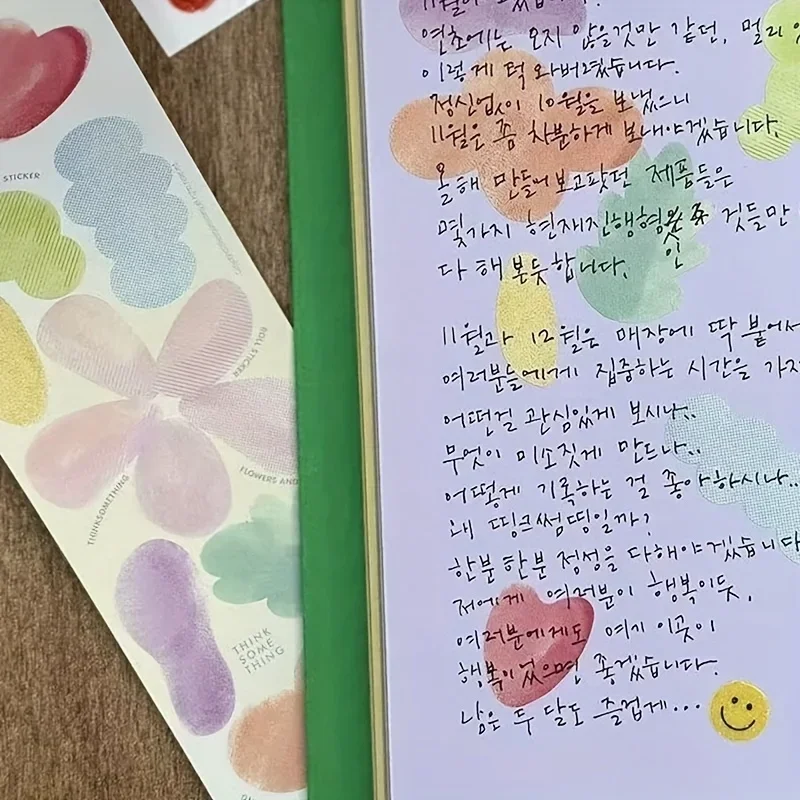 STICKER
ROLL STICKER
FLOWERS AND
THINKSOMETHING
THINK
SOME
THING
11월이
연초에는 오지 않을것만 같던, 멀리
이렇게 턱 와버렸습니다.
정신없이 10월을 보냈으니
11월은 좀 차분하게 보내야겠습니다.
올해 만들어보고팟던 제품들은
몇가지 현재진행형인 것들만
다 해본듯합니다.
11월과 12월은 매장에 딱 붙어서
여러분들에게 집중하는 시간을 가지
어떤걸 관심있게 보시나..
무엇이 미소짓게 만드나..
어떻게 기록하는 걸 좋아하시나..
왜 띵크썸띵일까?
한분 한분 정성을 다해야겠습니다
저에게 여러분이 행복이듯,
여러분에게도 여기 이곳이
행복이었으면 좋겠습니다.
남은 두 달도 즐겁게...